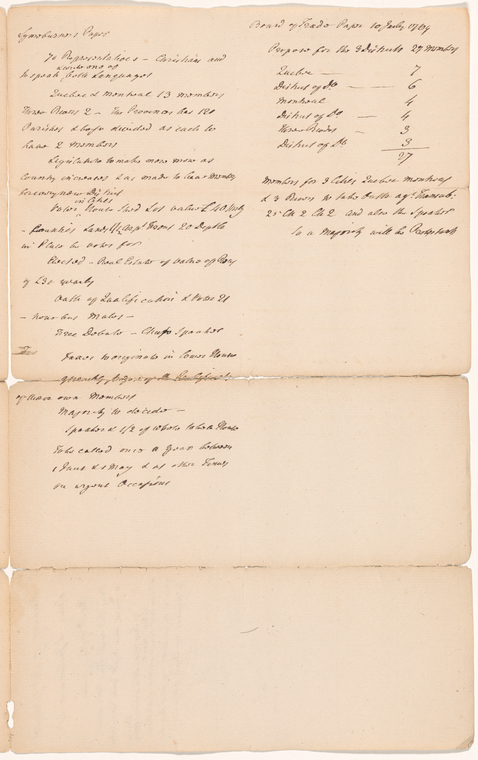 Lymburners Paper
70 Representatives – Christians and
to speak both Languages
Quebec & Montreal 13 members
Three Rivers 2 – The Province has 120
Parishes & to be so divided as each to
have 2 members
Legislature to make more as
Country increases & as made to have Members
for every new District
in Cities
Voter House Land Lot value £40
– Counties Lands 1/2 front 20 Depth
in Place he votes for
Elected – Real Estate of value of
of £30 yearly
Oath of Qualification & Voter 21
– none but Males –
Free Debate – Chuse Speaker
Taxes to originate in lower House
of their own Members
Majority to decide –
Speaker & 1/2 of whole to be a House
To be called once a Year between
1 Jany & 1 May & at other Times
on urgent Occasions
Board of Trade Paper 10 July 1789
Propose for the 3 Districts 27 members
Quebec 7
District of Do – 6
Montreal 4
District of Do – 4
Three Rivers – 3
District of Do 3
27
Members for 3 Cities Quebec Montreal
& 3 Rivers to take Oaths agt Transub:
25 Ch 2 Ch 2 and also the Speaker
So a Majority will be Protestants